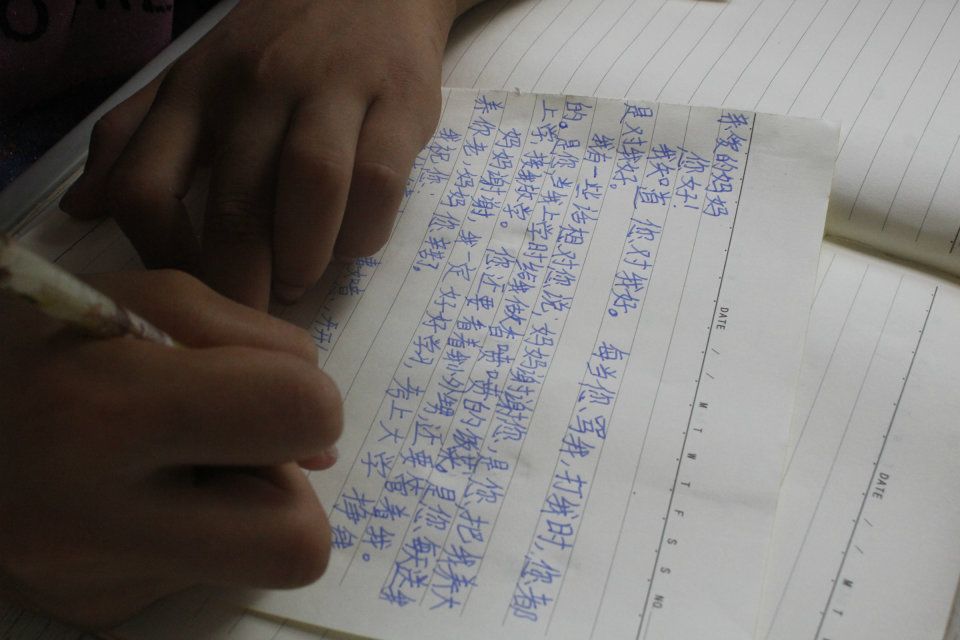 DATE / M T W T F S S NO.
亲爱的妈妈
您好!
我知道你对我好。每当你骂我,打我时,您都
是对我好。
我有一些话想对你说,妈妈谢谢您,是你把我养大
的。是你,当我上学时给我做香喷喷的是你每天送我
上学,接我放学。你还要看着还要您管着我。
妈妈谢谢 我一定好好学习,考上大学
养你老,妈妈你辛苦了。
我祝您
DATE / M T